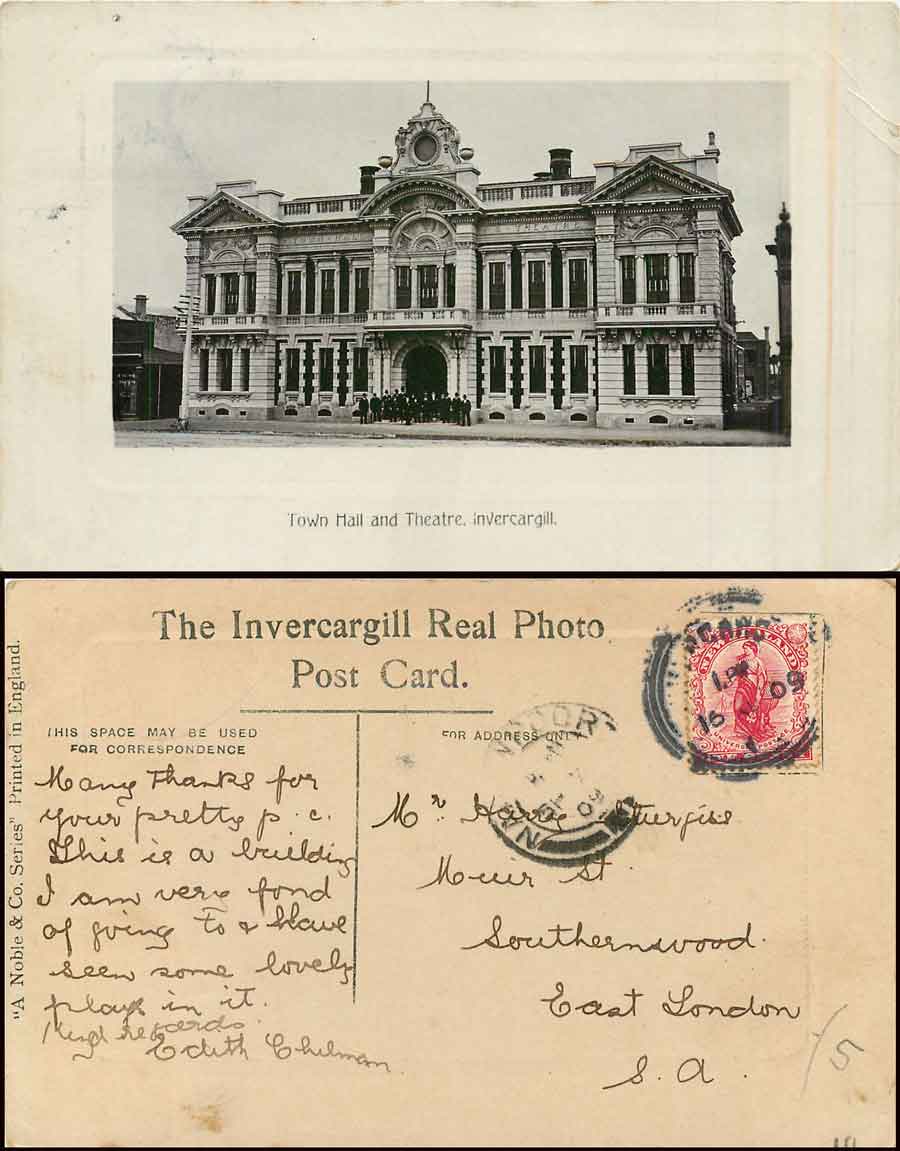 TOWN HALL
THEATRE
Town Hall and Theatre, Invercargill.
The Invercargill Real Photo
Post Card.
"A Noble & Co. Series" Printed in England.
THIS SPACE MAY BE USED
FOR CORRESPONDENCE
FOR ADDRESS ONLY
NEW ZEALAND
1 PM
16
09
09
Many Thanks for
your pretty p.c.
This is a building
I am very fond
of going to & have
seen some lovely
plays in it.
Kind regards.
Edith Chilman.
Mr. Harry Sturgiss
Muir St.
Southernwood.
East London
S. A.
/5